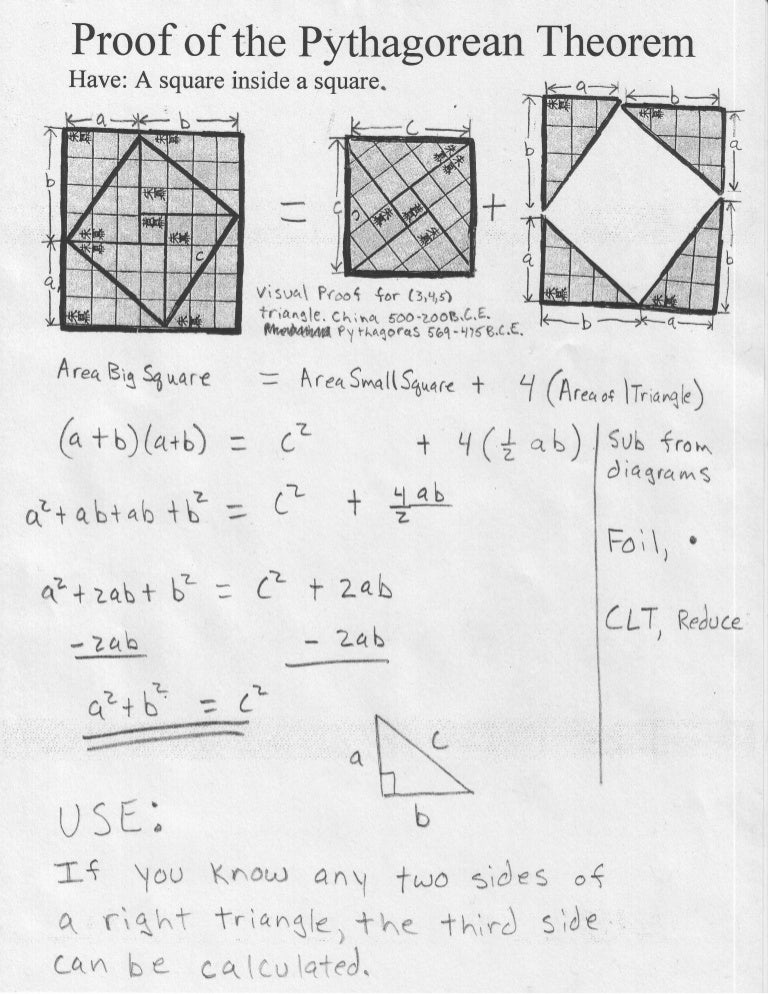 Proof of the Pythagorean Theorem
Have: A square inside a square.
a b
b
a
c
=
c
c
+
a b
b a
a b
b a
Visual Proof for (3,4,5)
triangle. China 500-200B.C.E.
Pythagoras 569-475B.C.E.
Area Big Square = Area Small Square + 4 (Area of 1 Triangle)
(a+b)(a+b) = c² + 4(½ ab) Sub from
diagrams
a²+ab+ab+b² = c² + 4ab/2 Foil, •
a²+2ab+b² = c² + 2ab CLT, Reduce
-2ab - 2ab
a²+b² = c²
a c
b
USE:
If you know any two sides of
a right triangle, the third side
can be calculated.